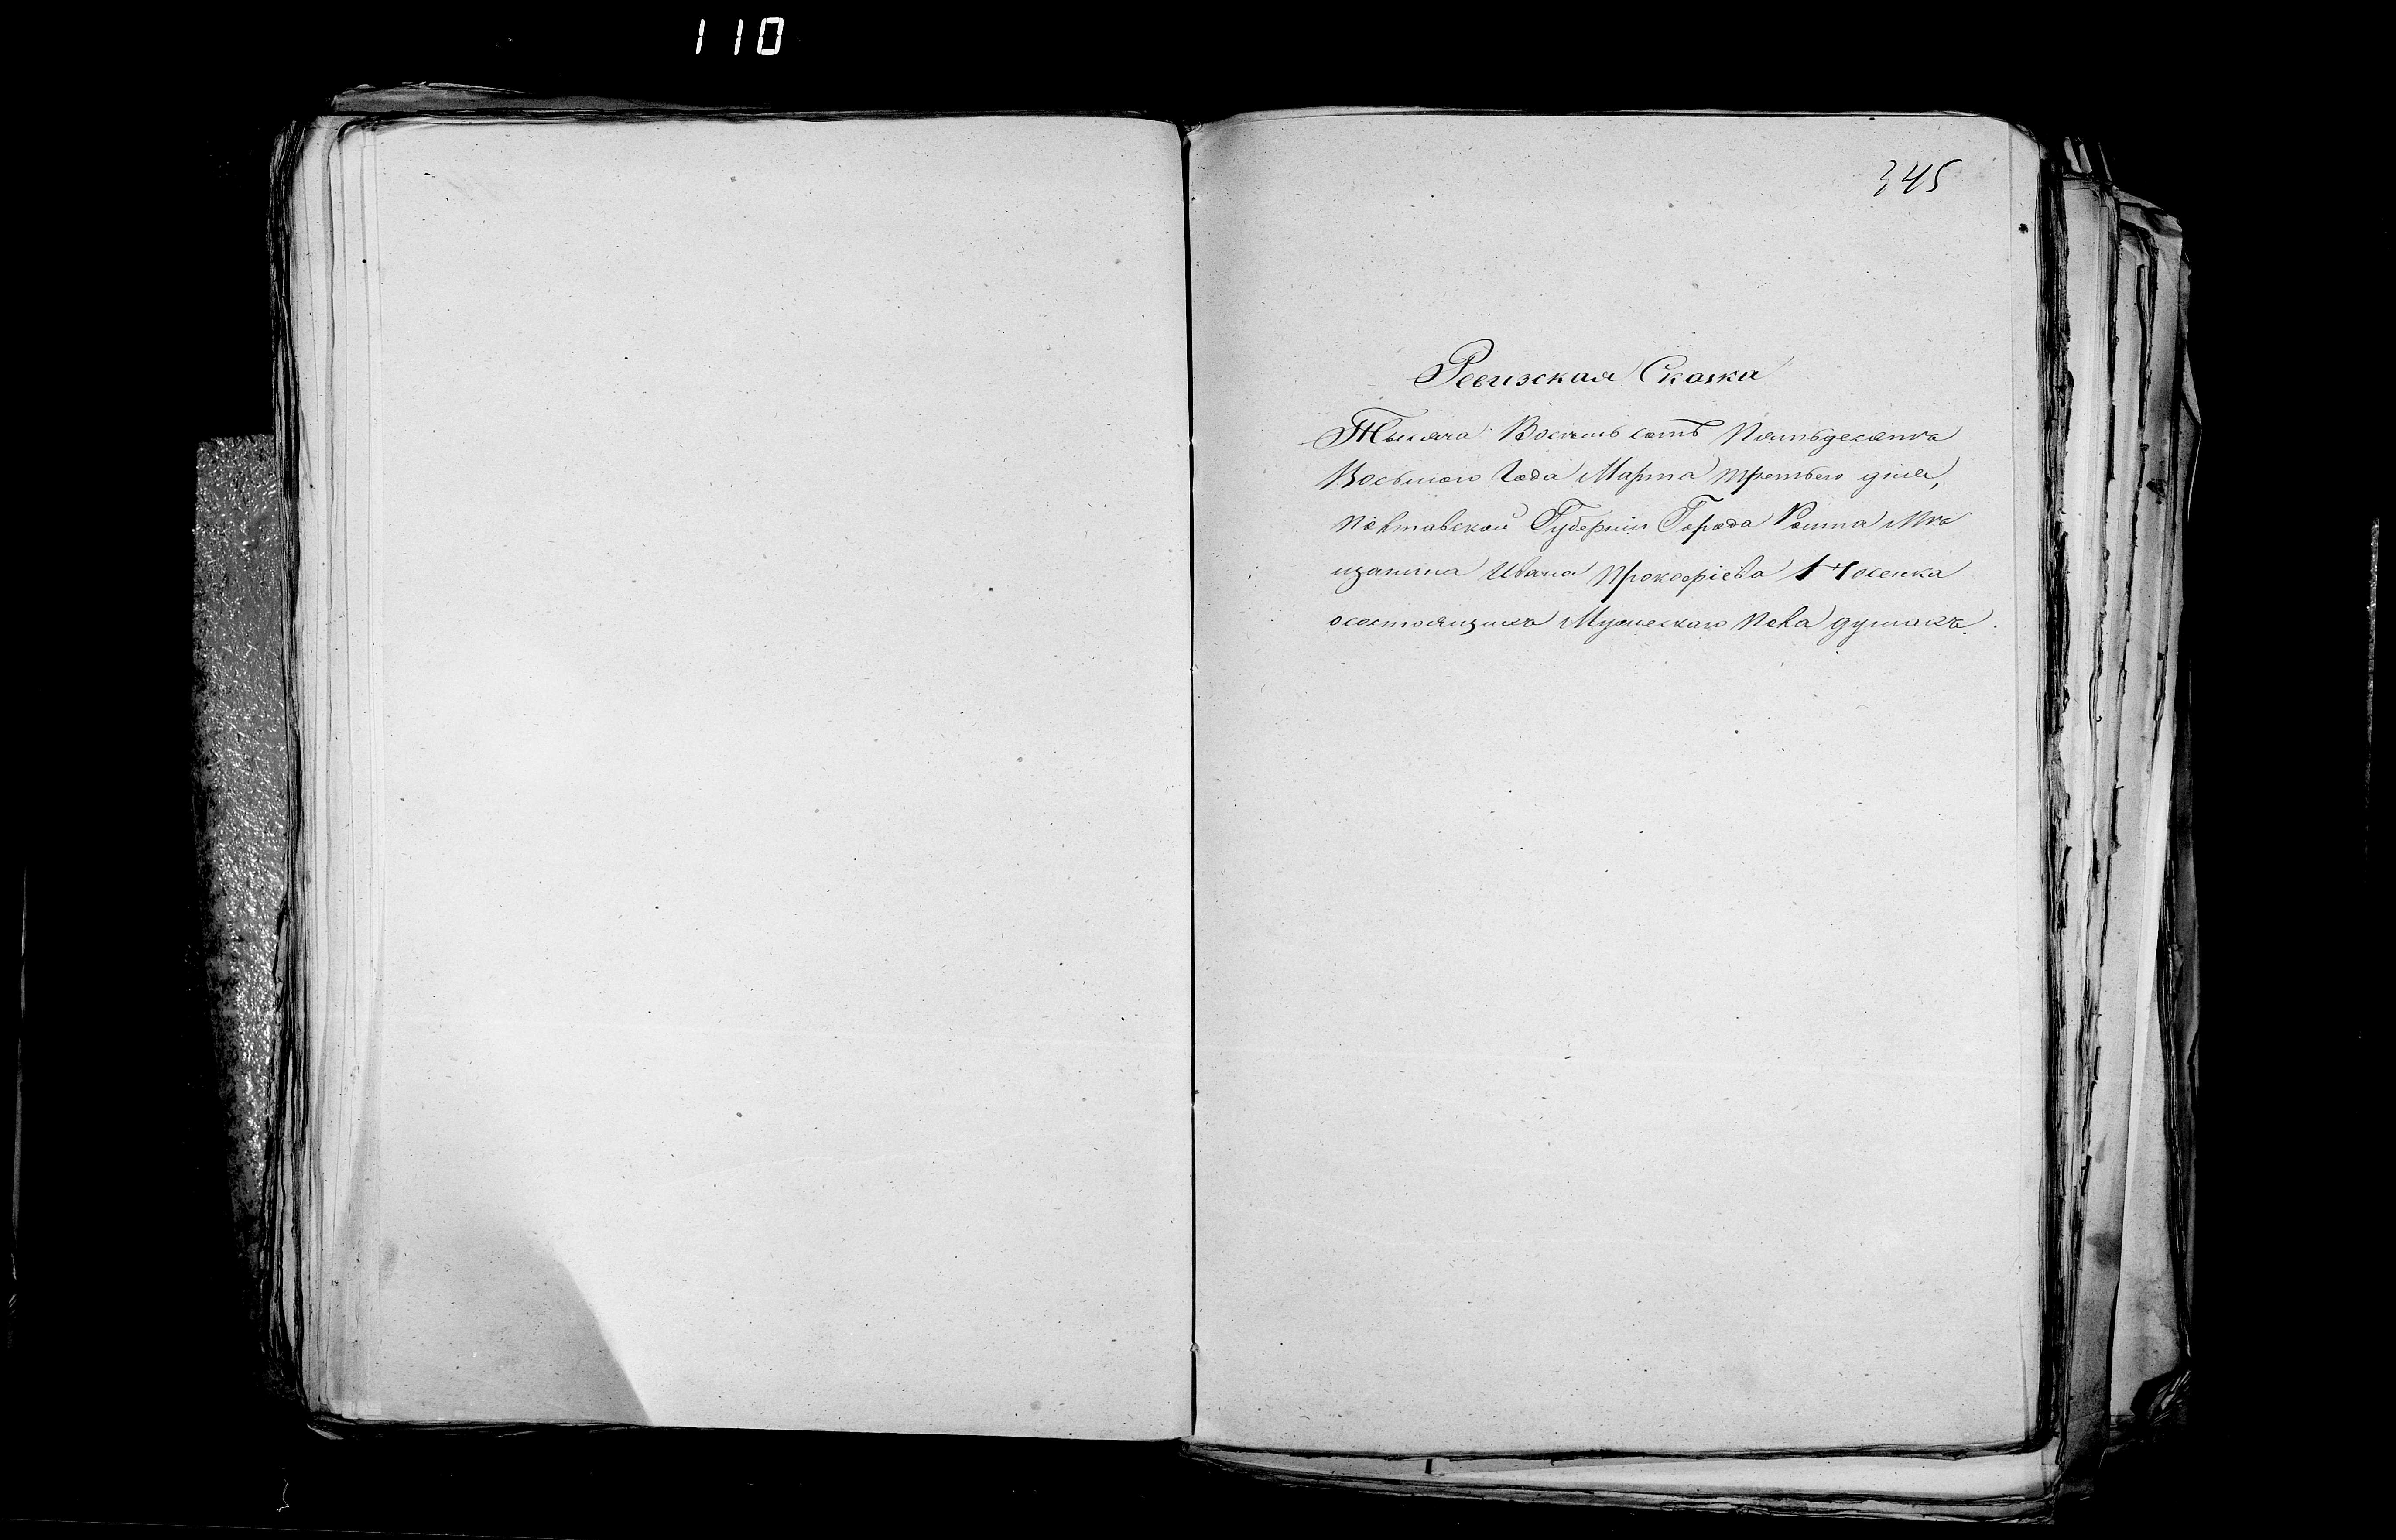 110
345
Ревизская Сказка
Тысяча Восемь сотъ Пятьдесятъ
Восьмого Года Марта третьего дня,
Полтавской Губерніи Города Ромна Мѣ
щанина Ивана Прокофіева
осостоящихъ Мужескаго Пола душахъ.